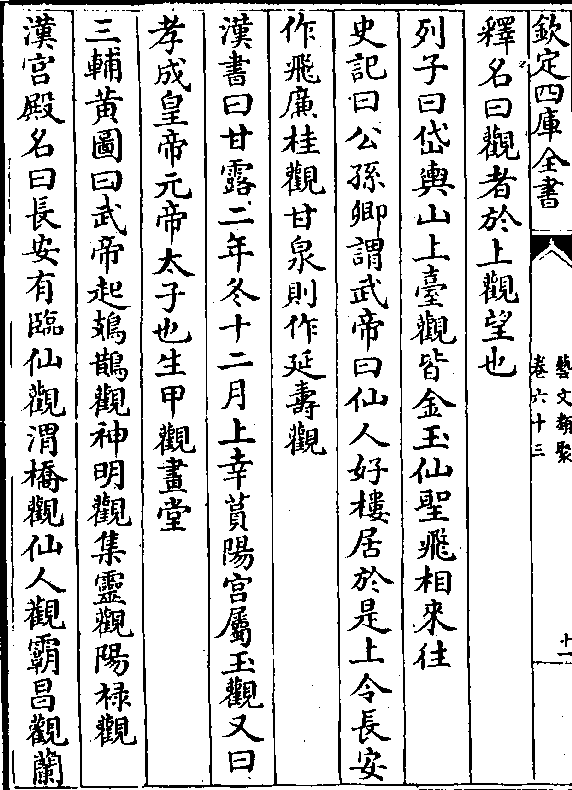 欽定四庫全書
藝文類聚
卷六十三
十一
釋名曰觀者於上觀望也
列子曰岱輿山上臺觀皆金玉仙聖飛相來往
史記曰公孫卿謂武帝曰仙人好樓居於是上令長安
作飛廉桂觀甘泉則作延壽觀
漢書曰甘露二年冬十二月上幸萯陽宮屬玉觀又曰
孝成皇帝元帝太子也生甲觀畫堂
三輔黃圖曰武帝起鳷鵲觀神明觀集靈觀陽祿觀
漢宮殿名曰長安有臨仙觀渭橋觀仙人觀霸昌觀蘭